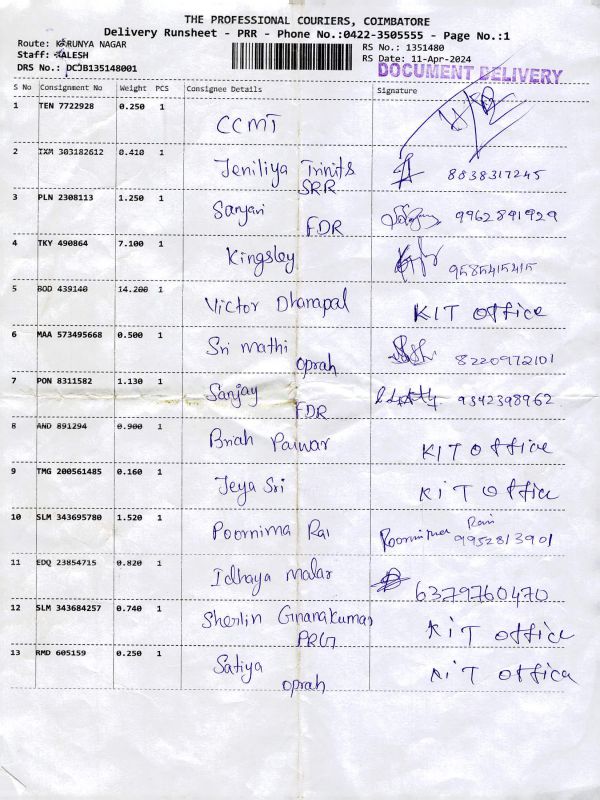 THE PROFESSIONAL COURIERS, COIMBATORE
Delivery Runsheet - PRR - Phone No.:0422-3505555 - Page No.:1
Route: KARUNYA NAGAR
Staff: KALESH
DRS No.: DCJB135148001
RS No.: 1351480
RS Date: 11-Apr-2024
DOCUMENT DELIVERY
S No Consignment No Weight PCS Consignee Details Signature
1 TEN 7722928 0.250 1 CCMT
2 IXM 303182612 0.410 1 Jeniliya Trinits 8838317245
SRR
3 PLN 2308113 1.250 1 Sanjari 9962891929
FDR
4 TKY 490864 7.100 1 Kingsley 9585415415
5 BOD 439140 14.200 1 Victor Dhanapal KIT office
6 MAA 573495668 0.500 1 Sri mathi 8220972101
oprah
7 PON 8311582 1.130 1 Sanjay 9342398962
FDR
8 AND 891294 0.900 1 Briah Paiwar KIT office
9 TMG 200561485 0.160 1 Jeya Sri KIT office
10 SLM 343695780 1.520 1 Poornima Rai Poornima Rani
9952813901
11 EDQ 23854715 0.820 1 Idhaya malar 6379760470
12 SLM 343684257 0.740 1 Sherlin Gnanakumar KIT office
PRG
13 RMD 605159 0.250 1 Satiya KIT office
oprah